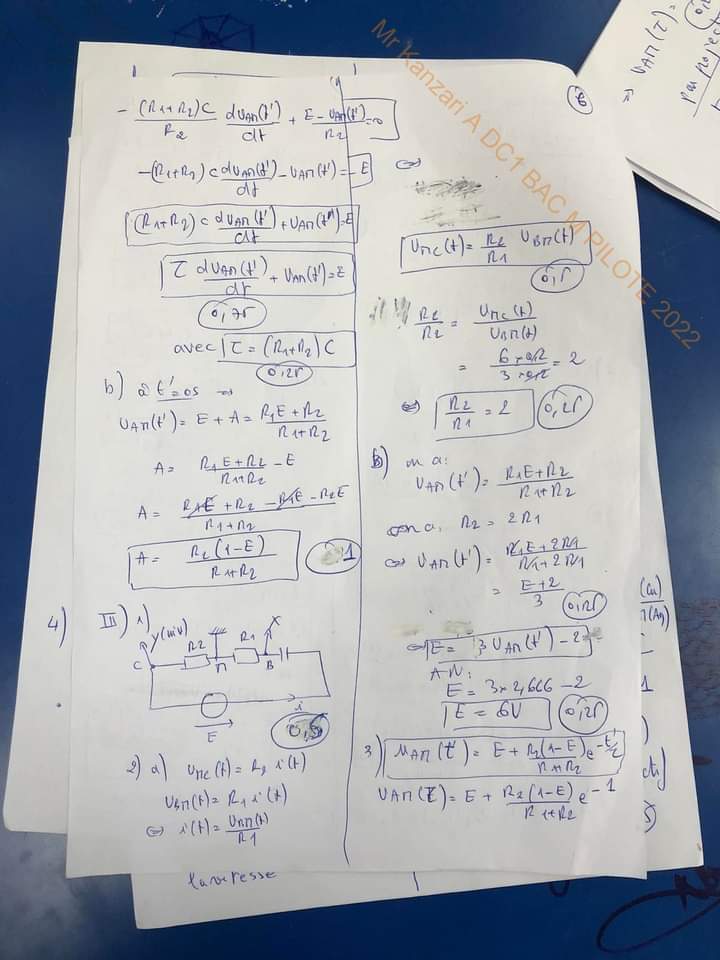 - (R1+R2)C/R2 dUAM(t')/dt + E-UAM(t')/R2 = 0
-(R1+R2)C dUAM(t')/dt - UAM(t') = -E
(R1+R2)C dUAM(t')/dt + UAM(t') = E
τ dUAM(t')/dt + UAM(t') = E
0,75
avec τ = (R1+R2)C
0,25
b) à t'=0s ⇒
UAM(t') = E + A = R1E+R2/R1+R2
A = R1E+R2/R1+R2 - E
A = R1E + R2 - R1E - R2E/R1+R2
A = R2(1-E)/R1+R2
1
4) III) 1)
Y(inv) R2 R1 X
C M B
i
E
0,5
2) a) UMC(t) = R2 i(t)
UBM(t) = R1 i(t)
⇔ i(t) = UBM(t)/R1
6
⇔
UMC(t) = R2/R1 UBM(t)
0,5
R2/R2 = UMC(t)/UBM(t)
= 6*0,2/3*0,2 = 2
⇔ R2/R1 = 2
0,25
b) on a:
UAM(t') = R1E+R2/R1+R2
on a, R2 = 2R1
⇔ UAM(t') = R1E+2R1/R1+2R1
= E+2/3
0,25
⇔ E = 3UAM(t') - 2
A.N:
E = 3*2,666 - 2
E = 6V
0,25
3) UAM(t') = E + R2(1-E)/R1+R2 e^-t'/τ
UAM(τ) = E + R2(1-E)/R1+R2 e^-1
⇒ UAM(τ) =
par project
(Cu)
(Ag)
1
Mr Kanzari A DC1 BAC M PILOTE 2022